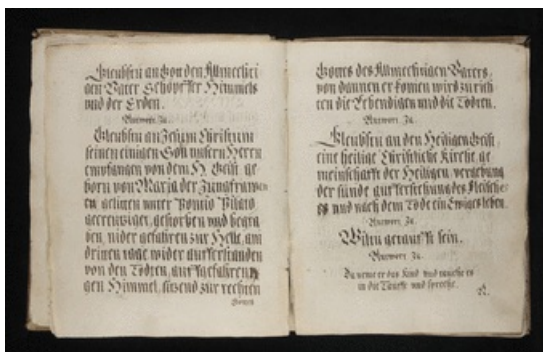 Gleubstu an Gott den Allmechti
gen Vater Schöpffer Himmels
und der Erden.
Antwort Ja.
Gleubstu an Jesum Christum
seinen einigen Son unsern Herrn
empfangen von dem H. Geist ge
born von Maria der Jungfrawen
gelitten unter Pontio Pilato
gecreutziget, gestorben und begra
ben, nider gefahren zur Helle, am
dritten tage wider aufferstanden
von den Todten, auffgefahren
gen Himmel, sitzend zur rechten
Gottes
Gottes des Allmechtigen Vaters,
von dannen er komen wird zu rich
ten die Lebendigen und die Todten.
Antwort Ja.
Gleubstu an den Heiligen Geist,
eine heilige Christliche Kirche ge
meinschafft der Heiligen, vergebung
der sünde aufferstehung des Fleische
und nach dem Tode ein Ewiges leben.
Antwort Ja.
Wiltu getaufft sein.
Antwort Ja.
Da neme er das Kind und tauche es
in die Tauffe und spreche.